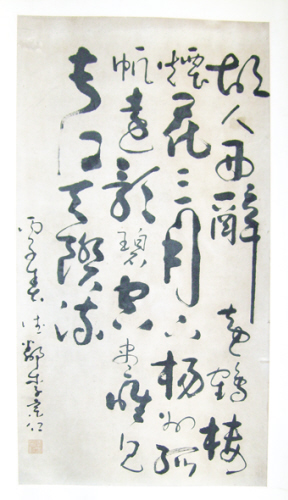 故人西辭黃鶴樓
煙花三月下楊州孤
帆遠影碧空盡唯見
長江天際流
丙子春